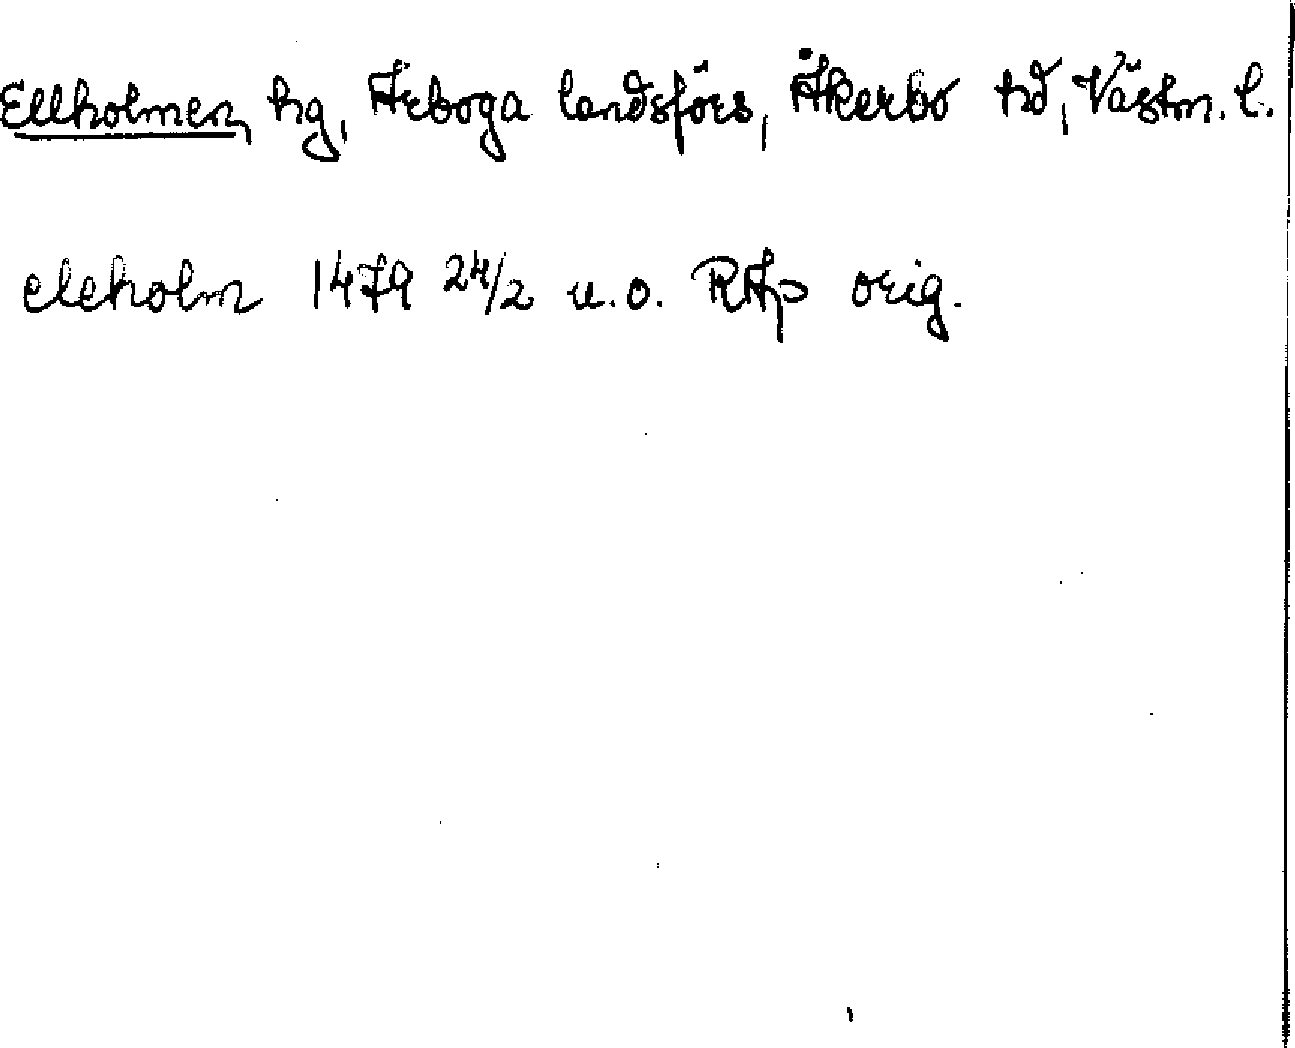 Ellholmen, hg, Arboga landsförs, Åkerbo hd, Västm. l.
eleholm 1479 24/2 u.o. RAp orig.